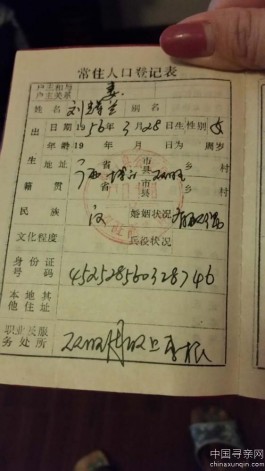 常住人口登记表
户主或与
户主关系 妻
姓名 刘 兰 别名
出 日期1956年3月28日生性别女
年龄19 年 月 日为 周岁
生 地址 广西省 市县 双旺乡 村
籍贯 省 市县 乡 村
民族 汉 婚姻状况 有配偶
文化程度 兵役状况
身份证
号码 452528560328746
本地其
他住址
职业及服
务处所 双旺
中国寻亲网
chinaxunqin.com